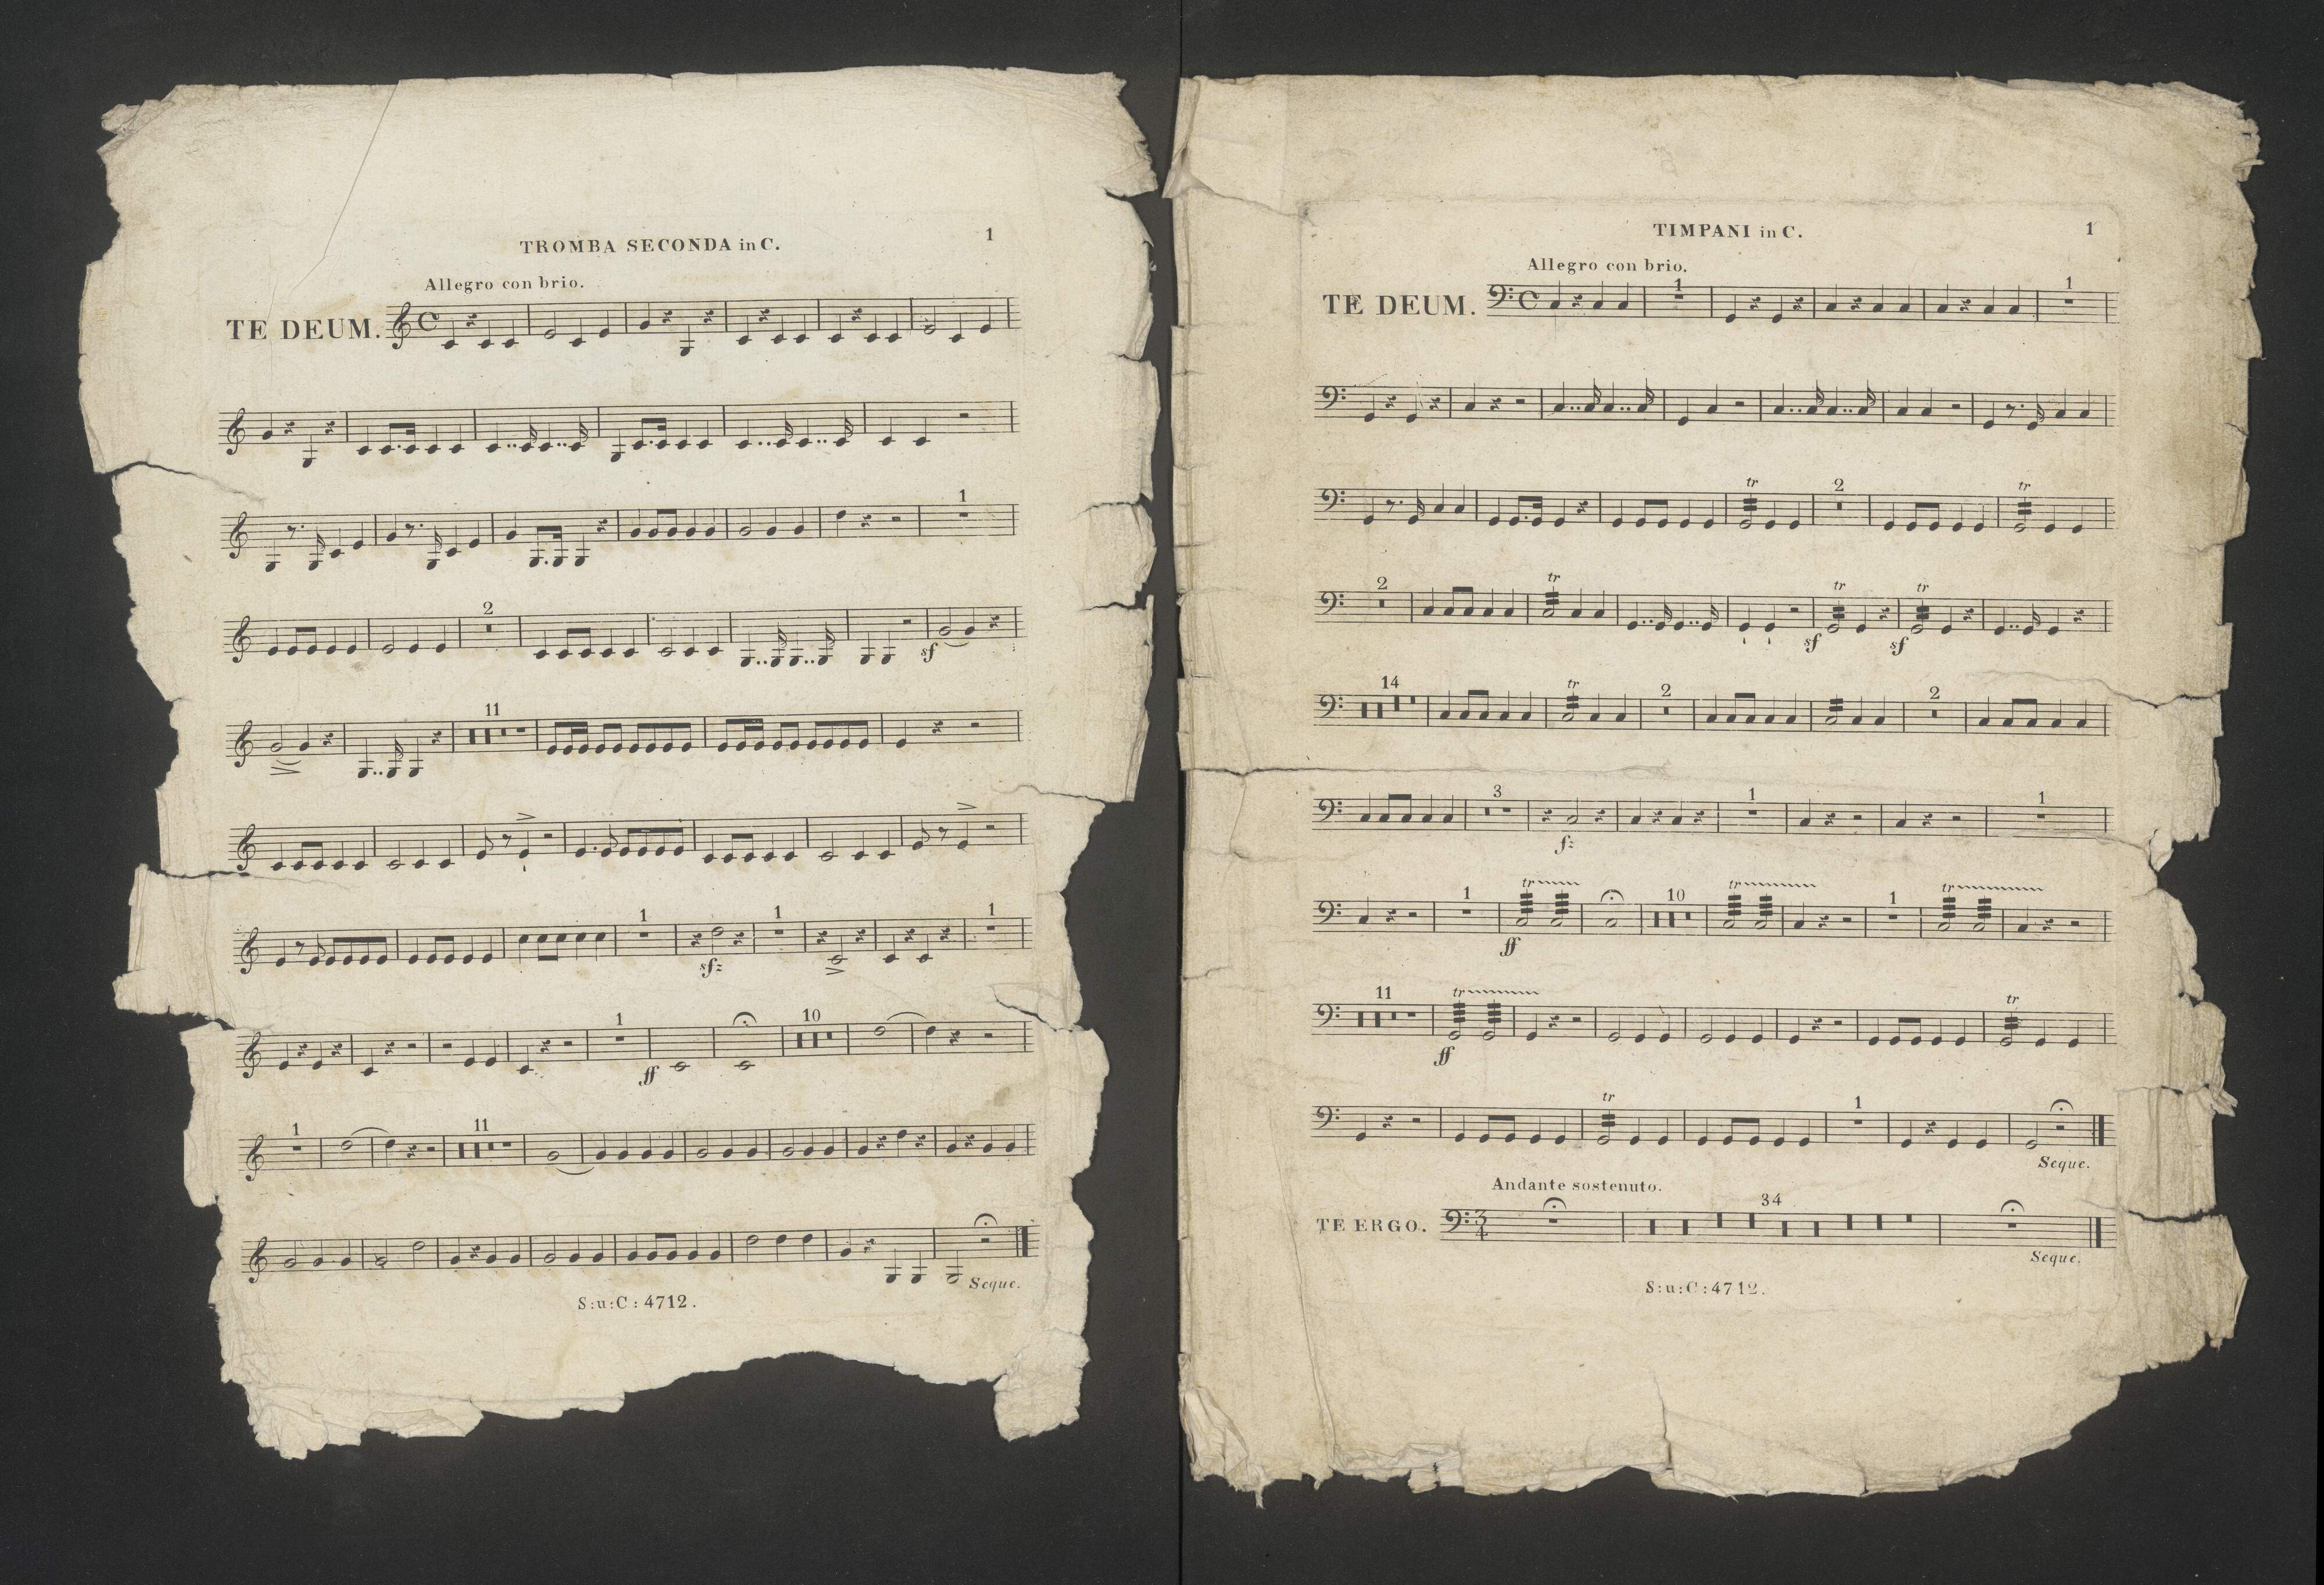 TROMBA SECONDA in C.
1
Allegro con brio.
TE DEUM.
1
2
sf
11
1
sfz
1
1
1
ff
10
1
11
Seque.
S:u:C:4712.
TIMPANI in C.
1
Allegro con brio.
TE DEUM.
1
1
tr
2
tr
2
tr
sf
tr
sf
tr
14
tr
2
2
3
fz
1
1
1
ff
tr
10
tr
1
tr
11
ff
tr
tr
tr
1
Seque.
Andante sostenuto.
TE ERGO.
3
4
34
Seque.
S:u:C:4712.